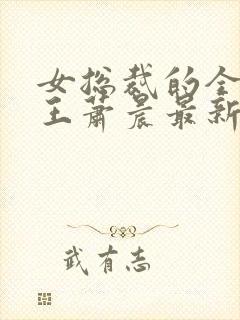 女总裁的全
王萧晨最新
武有志